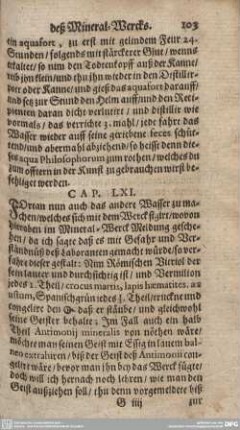 deß Mineral-Wercks. 103
ein aquafort, zu erst mit gelindem Feur 24.
Stunden / folgends mit stärckerer Glut / wenns
erkaltet / so nim den Todtenkopff auß der Kanne /
reib jhn klein / und thu ihn wieder in den Destillier-
oder Kanne / und gieß das aquafort darauff /
und setz zur Stund den Helm auff / und den Reci-
pienten daran dicht verlutiert / und distillir wie
vormals / das verricht 3. mahl / jede fahrt das
Wasser wieder auff seine geriebene feces schüt-
tend / und abermahl abziehend / so heisse denn die-
ses aqua Philosophorum zum rothen / welches du
zum offtern in der Kunst zu gebrauchen wirst be-
fehliget werden.
CAP. LXI.
FOrtan nun auch das andere Wasser zu ma-
chen / welches sich mit dem Werck figirt / wovon
hieroben im Mineral-Werck Meldung gesche-
hen / da ich sagte daß es mit Gefahr und Ver-
ständnüß deß Laboranten gemacht würde / so ver-
dieser gestalt: Nim Römischen Vitriol der
fein lauter und durchsichtig ist / und Vermilion
jedes 1. Theil / crocus martis, lapis hæmatites, æs
ustum, Spanischgrün jedes Theil / reucke und
congelire den daß er stäube / und gleichwohl
seine Geister behalte: Im Fall auch ein halb
Theil Antimonij mineralis von nöthen wäre /
möchte man seinen Geist mit Essig in lauem bal-
neo extrahiren / biß der Geist deß Antimonii con-
geliert wäre / bevor man jhn bey das Werck fügte /
doch will ich hernach noch lehren / wie man den
Geist außziehen soll / thu denn vorgemeldete biß
G iiij zur